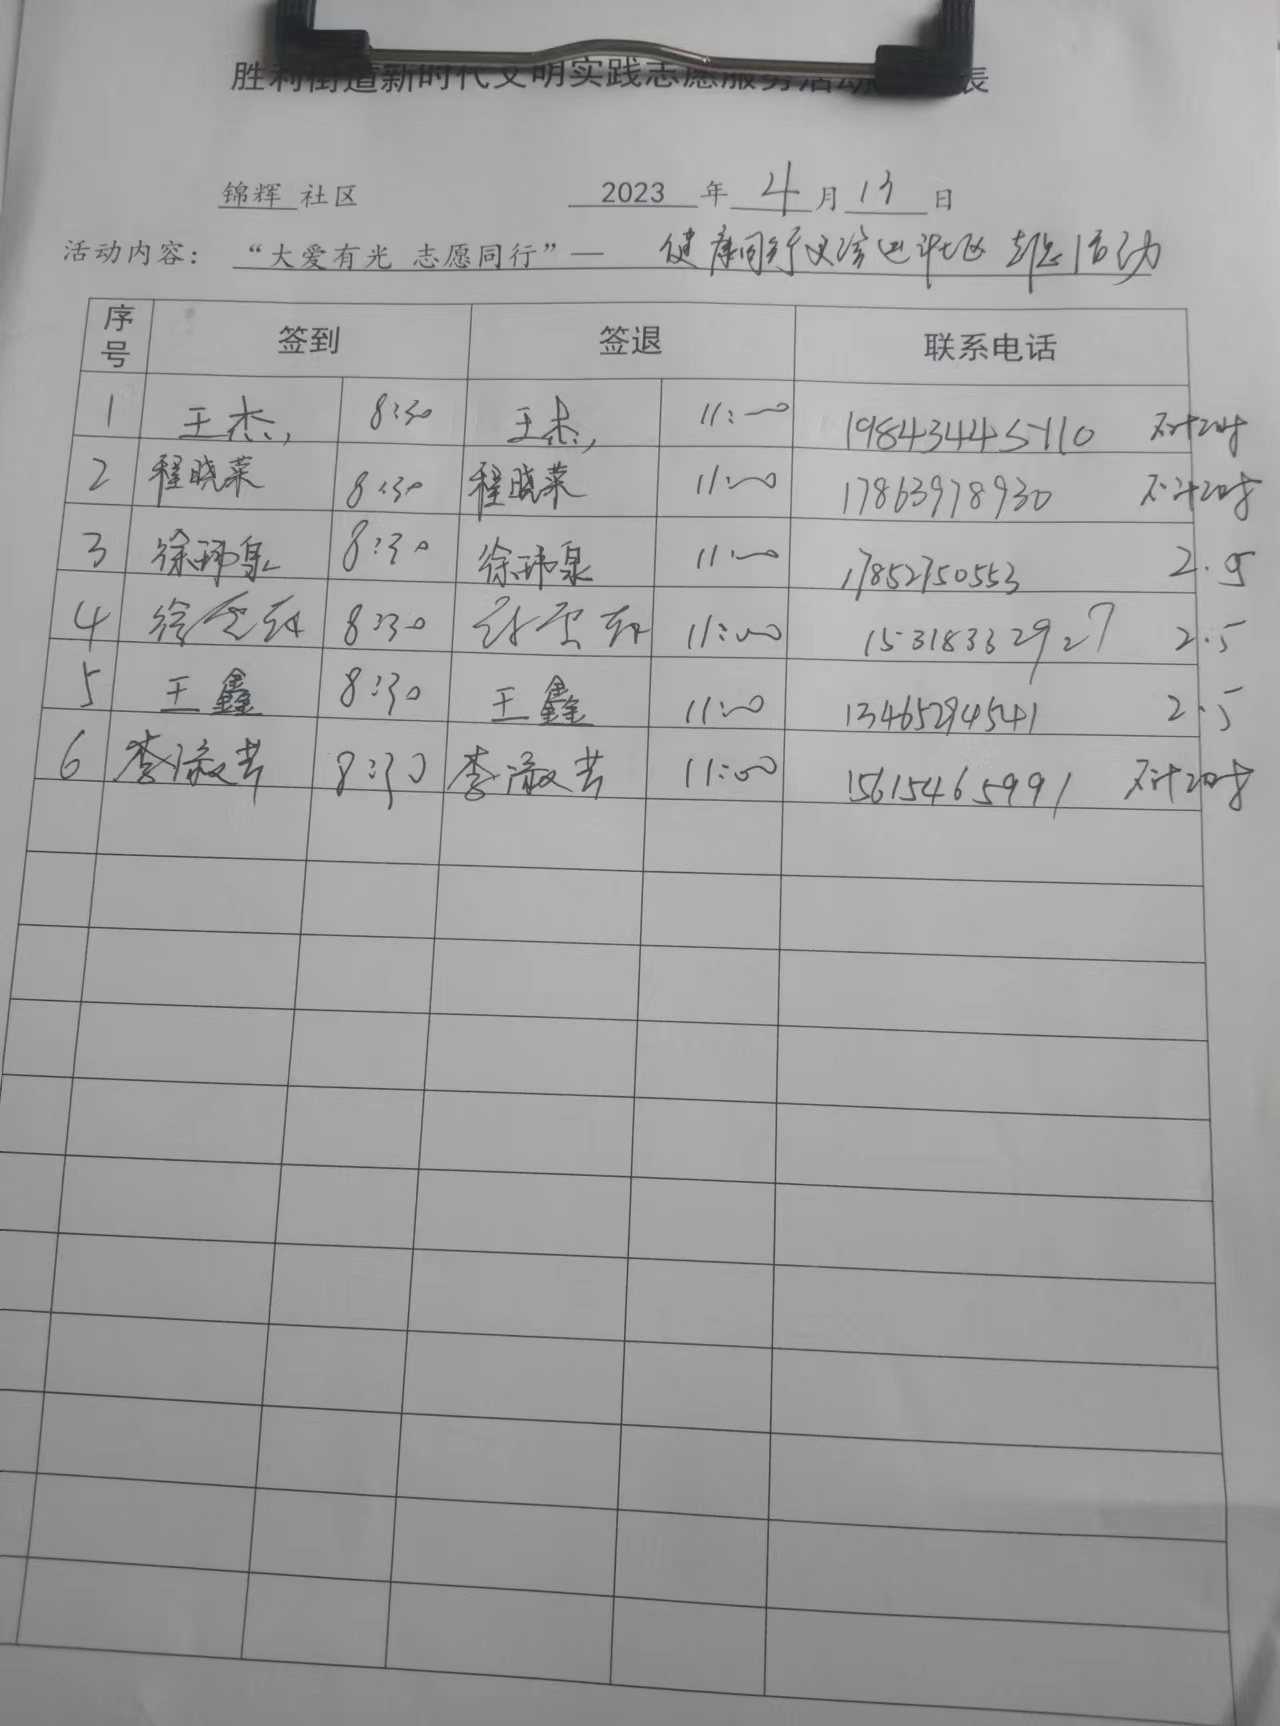 胜利街道新时代文明实践志愿服务活动 表
锦辉 社区 2023 年 4 月 13 日
活动内容：“大爱有光 志愿同行”— 健康同行义诊进社区 志愿活动
序号 签到 签退 联系电话
1 王杰 8:30 王杰 11:00 不计时
2 程晓菜 8:30 程晓菜 11:00 17863978930 不计时
3 徐玮泉 8:30 徐玮泉 11:00 17852750553 2.5
4 徐 8:30 11:00 15318332927 2.5
5 王鑫 8:30 王鑫 11:00 13465294541 2.5
6 李淑芳 8:30 李淑芳 11:00 15615465991 不计时